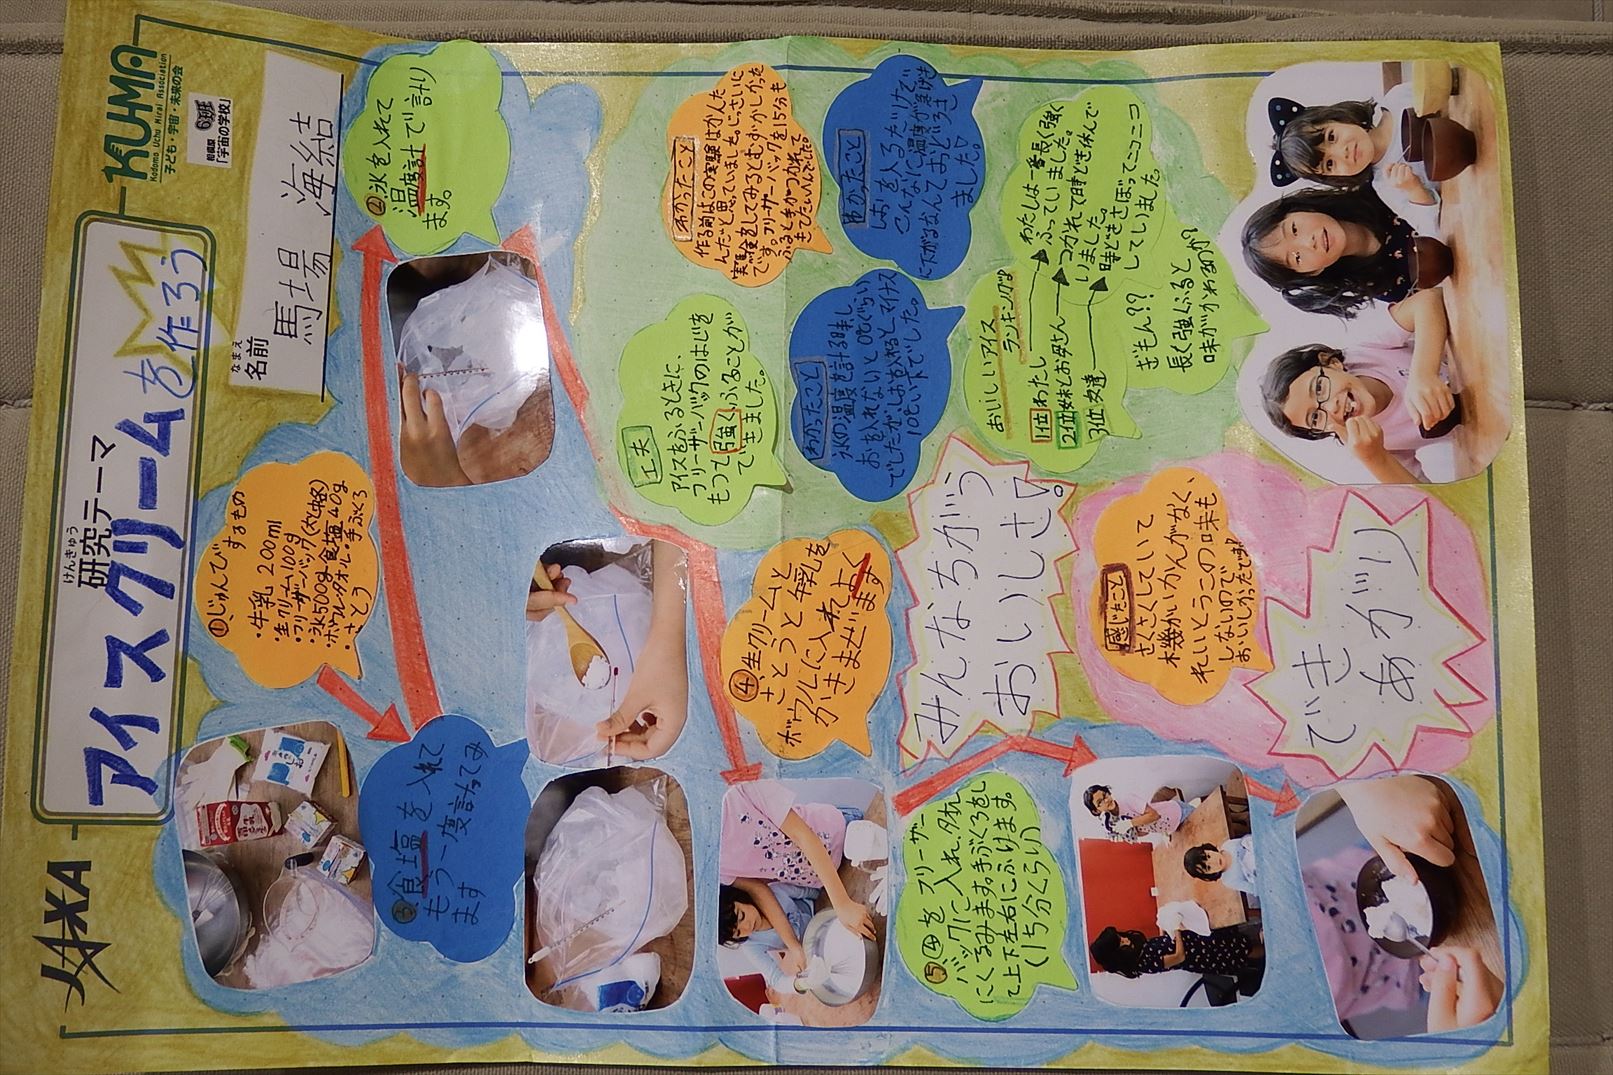 JAXA
けんきゅう
研究テーマ
アイスクリームを作ろう
KUMA
Kodomo Uchu Mirai Association
子ども・宇宙・未来の会
相模原
「宇宙の学校」
なまえ
名前
馬場 海結
①じゅんびするもの
・牛乳 200ml
・生クリーム100g
・フリーザーバック(大・中)
・氷500g・食塩40g
・ボウル・タオル・手ぶくろ
・さとう
②氷を入れて
温度計で計り
ます。
③食塩を入れて
もう一度計ってみ
ます
④生クリームと
さとうと牛乳を
ボウルに入れてよく
かきまぜます
⑤④をフリーザー
バックに入れ、タオル
にくるみます。手ぶくろをし
て上下左右にふります。
(15分くらい)
わかったこと
作る前はこの実験はかんた
んだと思っていました。じっさいに
実験をしてみるとむずかしかった
です。フリーザーバックを15分も
ふると手がつかれて
きてたいへんでした。
わかったこと
しおを入るだけで
こんなに温度が急げき
に下がるなんておどろき
ました!
工夫
アイスをふるときに、
フリーザーバックのはじを
もって強くふることが
できました。
わかったこと
氷の温度を計る時、し
おを入れないと0℃ぐらい
でしたが、しおを入れるとマイナス
10℃以下でした。
おいしいアイス
ランキング
1位わたし
わたしは一番長く強く
ふっていました。
2位妹とお母さん
つかれて時どき休んで
いました。
3位友達
時どきさぼってニコニコ
してしまいました。
ぎもん??
長く強くふると
味がかわるのか?
みんなちがう
おいしいさ!。
感じたこと
さくさくしていて
木幾かいかんがなく、
れいとうこの味も
しないので
おいしかったです!
できあがり